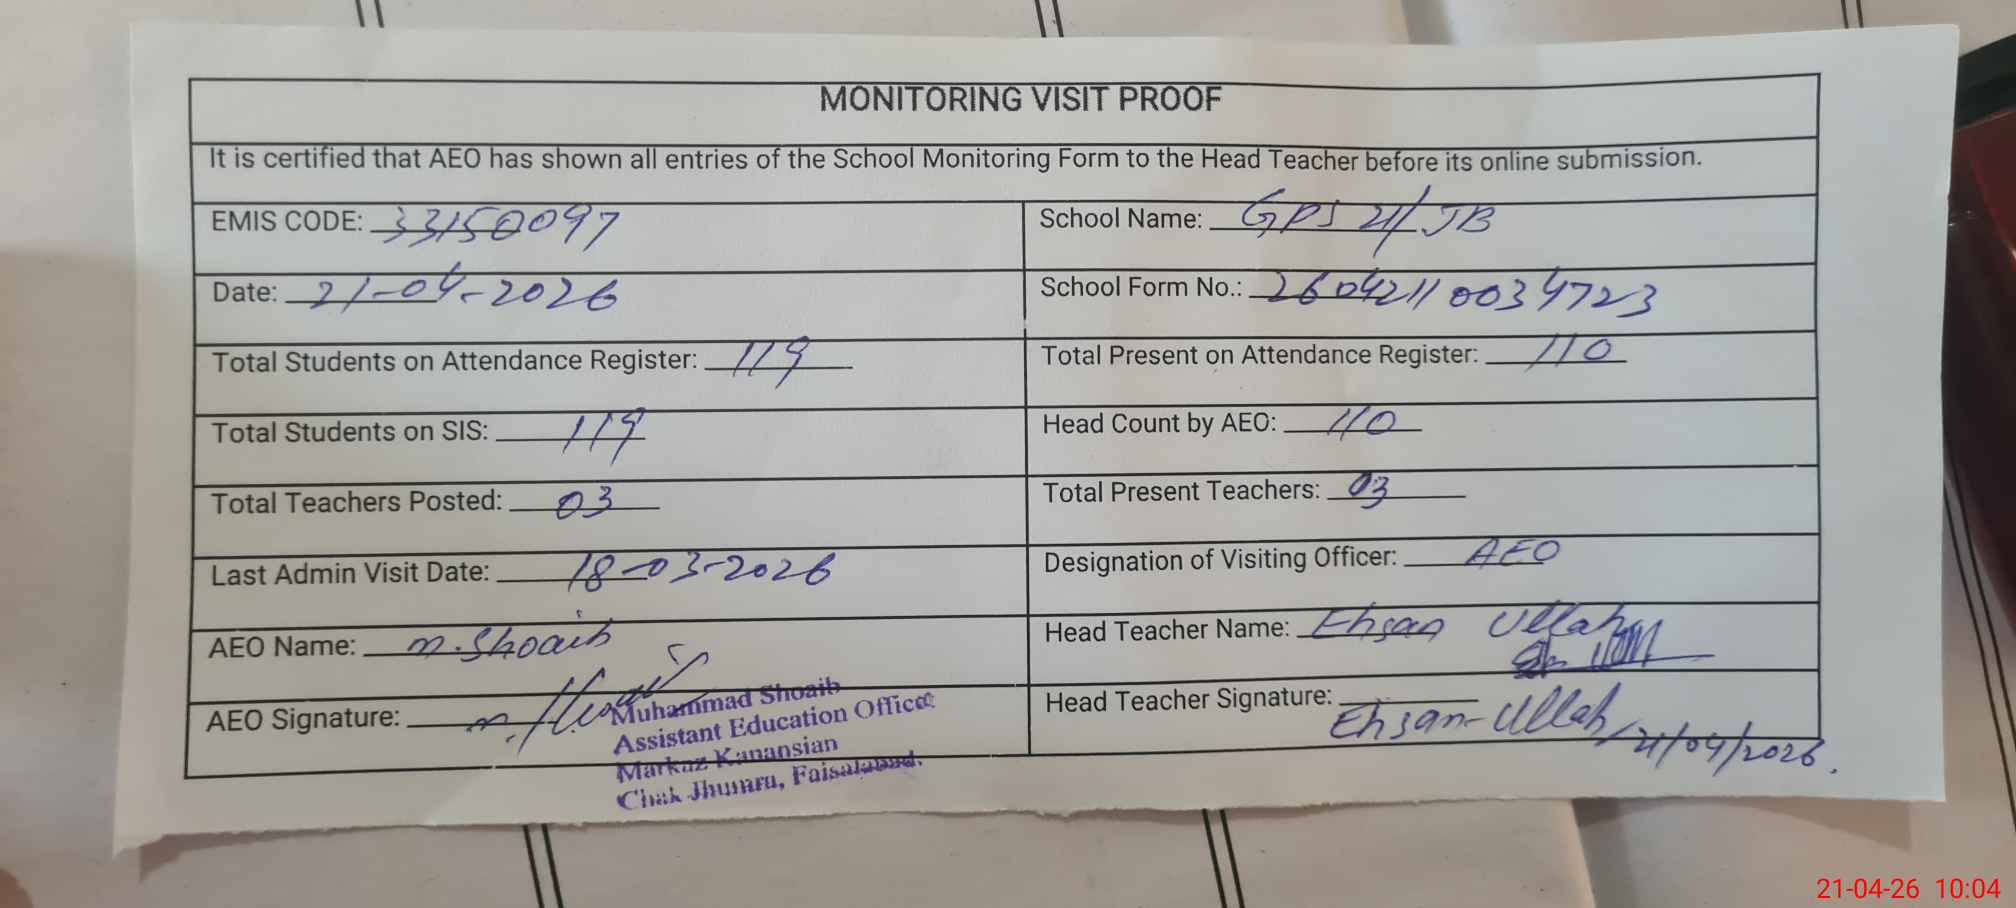 MONITORING VISIT PROOF
It is certified that AEO has shown all entries of the School Monitoring Form to the Head Teacher before its online submission.
EMIS CODE: 33150097
School Name: GPS 21/JB
Date: 21-04-2026
School Form No.: 26042110034723
Total Students on Attendance Register: 119
Total Present on Attendance Register: 110
Total Students on SIS: 119
Head Count by AEO: 110
Total Teachers Posted: 03
Total Present Teachers: 03
Last Admin Visit Date: 18-03-2026
Designation of Visiting Officer: AEO
AEO Name: M. Shoaib
Head Teacher Name: Ehsan Ullah
AEO Signature:
Muhammad Shoaib
Assistant Education Officer
Markaz Kanansian
Chak Jhumra, Faisalabad.
Head Teacher Signature:
Ehsan-Ullah, 21/04/2026.
21-04-26 10:04